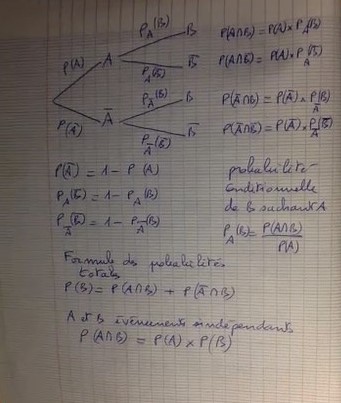 P(A) A P_A(B) B P(A∩B) = P(A) × P_A(B)
P_A(B̅) B̅ P(A∩B̅) = P(A) × P_A(B̅)
P(A̅) A̅ P_A̅(B) B P(A̅∩B) = P(A̅) × P_A̅(B)
P_A̅(B̅) B̅ P(A̅∩B̅) = P(A̅) × P_A̅(B̅)
P(A̅) = 1 - P(A)
P_A(B̅) = 1 - P_A(B)
P_A̅(B̅) = 1 - P_A̅(B)
probabilité
conditionnelle
de B sachant A
P_A(B) = P(A∩B) / P(A)
Formule des probabilités
totales
P(B) = P(A∩B) + P(A̅∩B)
A et B évènements indépendants
P(A∩B) = P(A) × P(B)